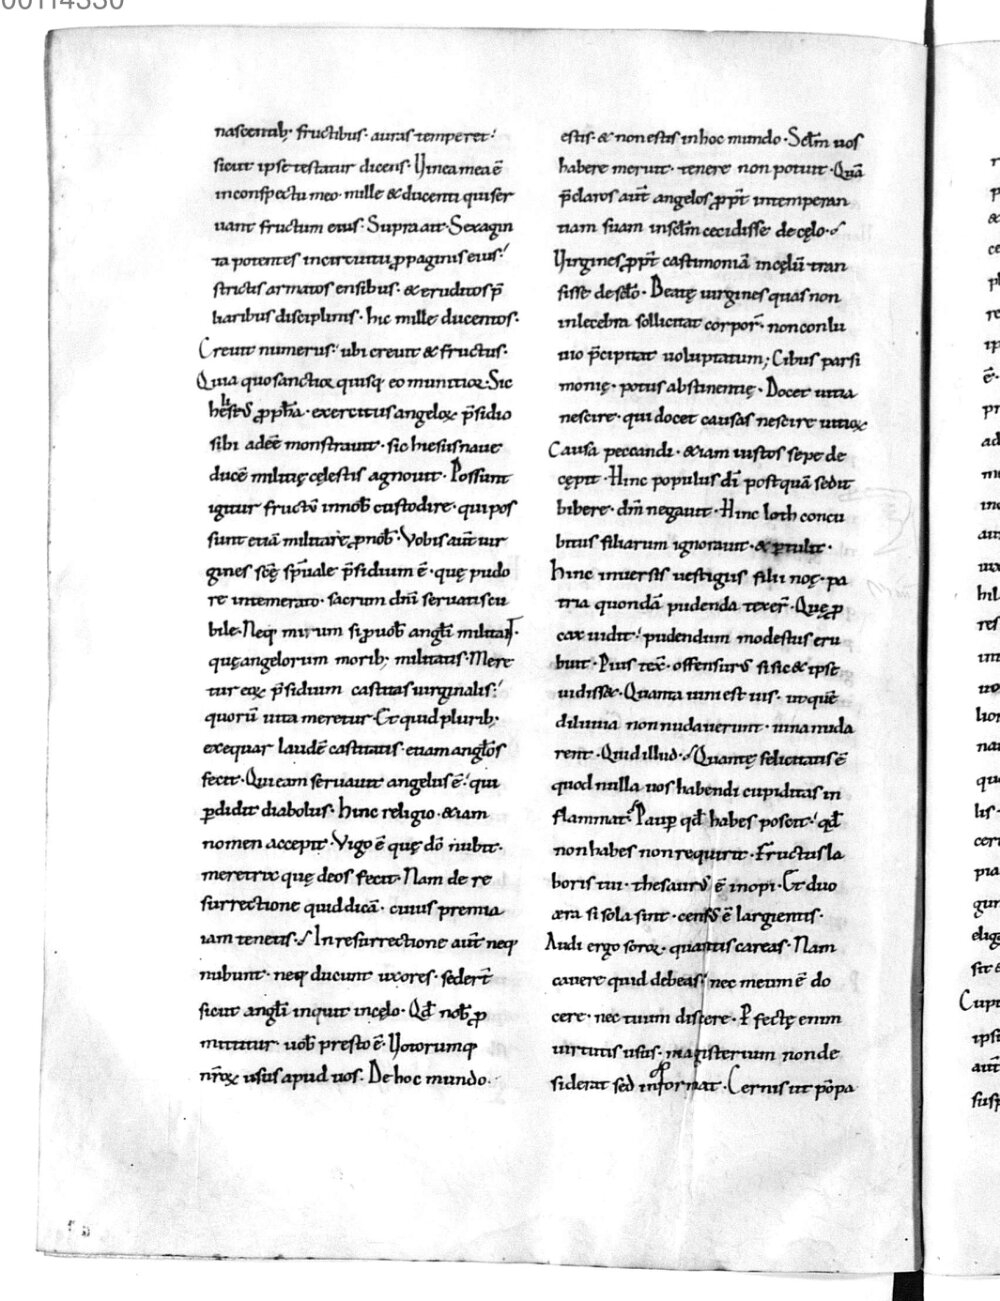 00114330
nascentib; fructibus· auras temperet!
sicut ipse testatur dicens· Vinea mea ē
in conspectu meo· mille & ducenti qui ser
uant fructum eius· Supra ait· Sexagin
ta potentes incircuitu ꝓpaginis eius!
strictis armatos ensibus· & eruditos p̄
liaribus disciplinis· hic mille ducentos·
Creuit numerus! ubi creuit & fructus·
Quia quo sanctior quisq; eo munitior· Sic
exercitus angeloꝝ p̄sidio
sibi adeē monstrauit· sic hiesus naue
ducē militię cęlestis agnouit· Possunt
igitur fructū innob̄ custodire· qui pos
sunt etiā militare ꝓ nob̄· Vobis aūt uir
gines scę̄ sp̄uale p̄sidium ē· quę pudo
re intemerato· sacrum dn̄i seruatis cu
bile· Neq; mirum si ꝓ uob̄ angl̄i militant·
quę angelorum morib; militatis· Mere
tur eoꝝ p̄sidium castitas uirginalis!
quorū uita meretur· Et quid plurib;
exequar laudē castitatis· etiam angl̄os
fecit· Qui eam seruauit angelus ē! qui
ꝑdidit diabolus· hinc religio· &iam
nomen accepit· Virgo ē quę dō nubit·
meretrix quę deos fecit· Nam de re
surrectione quid dicā· cuius premia
iam tenetis· In resurrectione aūt neq;
nubunt· neq; ducunt uxores· sed er̄t
sicut angl̄i inquit incęlo· Qd̄ nob̄ ꝓ
mittitur· uob̄ presto ē· Votorumq;
nr̄oꝝ usus apud uos· De hoc mundo·
estis· & non estis in hoc mundo· Sc̄lm uos
habere meruit· tenere non potuit· Quā
p̄claros aūt angelos ꝓpt̄ intemperan
tiam suam insc̄lm cecidisse de cęlo·
Virgines ꝓpt̄ castimoniā incęlū tran
sisse de sc̄lo· Beatę uirgines quas non
inlecebra sollicitat corpor̄· non conlu
uio p̄cipitat uoluptatum; Cibus parsi
monię· potus abstinentię· Docet uitia
nescire· qui docet causas nescire uitioꝝ
Causa peccandi· &iam iustos sepe de
cępit· Hinc populus dī postquā sedit
bibere· dm̄ negauit· Hinc loth concu
bitus filiarum ignorauit· & ꝑtulit·
hinc inuersis uestigiis filii noę· pa
tria quondā pudenda texer̄· Quę ꝓ
cax uidit! pudendum modestus eru
buit· Pius tex̄· offensurus si sic & ipse
uidisset· Quanta uini est uis· ut quē
diluuia non nudauerunt· uina nuda
rent· Quid illud· Quantę felicitatis ē
quod nulla uos habendi cupiditas in
flammat! Paup̄ qd̄ habes poscit! qd̄
non habes non requirit· Fructus la
boris tui· thesaurus ē inopi· Et duo
æra si sola sint· census ē largientis·
Audi ergo soror· quantis careas· Nam
cauere quid debeas! nec meum ē do
cere· nec tuum discere· P fectę enim
uirtutis usus· magisterium non de
siderat sed informat· Cernis ut pōpa